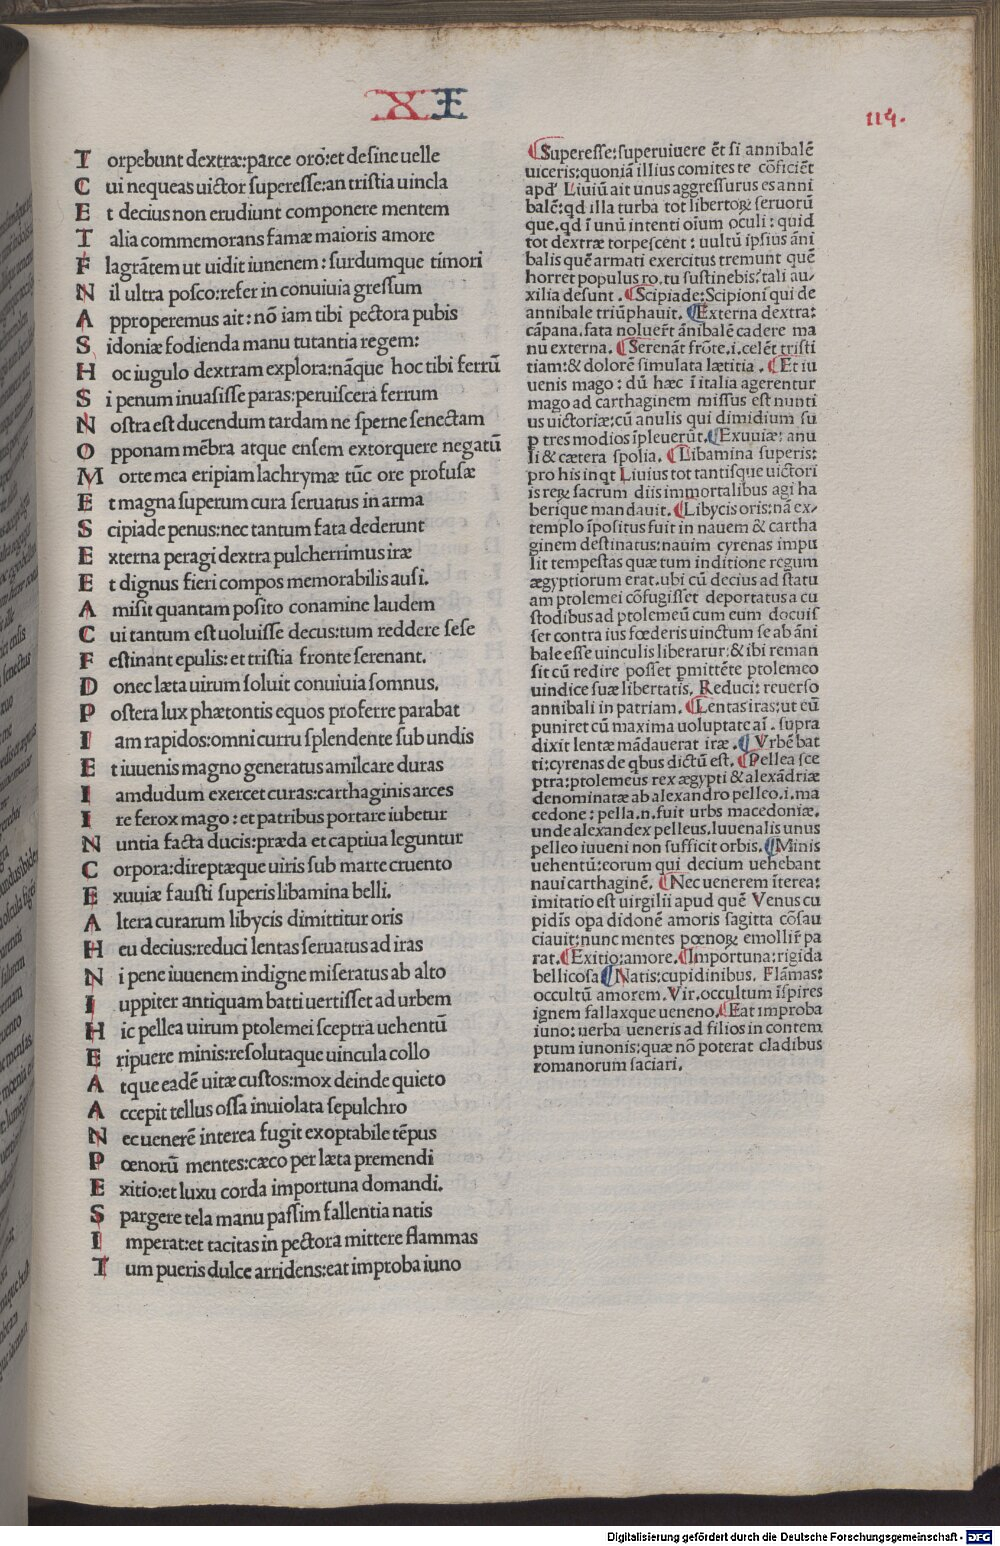 XI
114.
Torpebunt dextræ:parce orō:et desine uelle
Cui nequeas uictor superesse:an tristia uincla
Et decius non erudiunt componere mentem
Talia commemorans famæ maioris amore
Flagrātem ut uidit iunenem: surdumque timori
Nil ultra posco:refer in conuiuia gressum
Approperemus ait:nō iam tibi pectora pubis
Sidoniæ fodienda manu tutantia regem:
Hoc iugulo dextram explora:nāque hoc tibi ferrū
Si penum inuasisse paras:peruiscera ferrum
Nostra est ducendum tardam ne sperne senectam
Opponam mēbra atque ensem extorquere negatū
Morte mea eripiam lachrymæ tūc ore profusæ
Et magna superum cura seruatus in arma
Scipiade penus:nec tantum fata dederunt
Externa peragi dextra pulcherrimus iræ
Et dignus fieri compos memorabilis ausi.
Amisit quantam posito conamine laudem
Cui tantum est uoluisse decus:tum reddere sese
Festinant epulis:et tristia fronte serenant.
Donec læta uirum soluit conuiuia somnus.
Postera lux phætontis equos proferre parabat
Iam rapidos:omni curru splendente sub undis
Et iuuenis magno generatus amilcare duras
Iamdudum exercet curas:carthaginis arces
Ire ferox mago:et patribus portare iubetur
Nuntia facta ducis:præda et captiua leguntur
Corpora:direptæque uiris sub marte cruento
Exuuiæ fausti superis libamina belli.
Altera curarum libycis dimittitur oris
Heu decius:reduci lentas seruatus ad iras
Ni pene iuuenem indigne miseratus ab alto
Iuppiter antiquam batti uertisset ad urbem
Hic pellea uirum ptolemei sceptra uehentū
Eripuere minis:resolutaque uincula collo
Atque eadē uitæ custos:mox deinde quieto
Accepit tellus ossa inuiolata sepulchro
Nec uenerē interea fugit exoptabile tēpus
Pœnorū mentes:cæco per læta premendi
Exitio:et luxu corda importuna domandi.
Spargere tela manu passim fallentia natis
Imperat:et tacitas in pectora mittere flammas
Tum pueris dulce arridens:eat improba iuno
¶Superesse:superuiuere ēt si annibalē
uiceris:quoniā illius comites te cōficiēt
apd' Liuiū ait unus aggressurus es anni
balē:qd illa turba tot libertoꝝ seruorū
que.qd ī unū intenti oīum oculi: quid
tot dextræ torpescent: uultū īpsius āni
balis quē armati exercitus tremunt quē
horret populus ro. tu sustinebis: tali au⸗
xilia desunt. ¶Scipiade:Scipioni qui de
annibale triūphauit. ¶Externa dextra:
cāpana.fata noluer̄t ānibalē cadere ma
nu externa. ¶Serenāt frōte.i.celēt tristi
tiam:& dolorē simulata lætitia. ¶Et iu
uenis mago: dū hæc ī italia agerentur
mago ad carthaginem missus est nunti
us uictoriæ:cū anulis qui dimidium su
p tres modios īpleuerūt. ¶Exuuiæ: anu
li & cætera spolia. ¶Libamina superis:
pro his inqt Liuius tot tantisque uictori
is reꝝ sacrum diis immortalibus agi ha
berique mandauit. ¶Libycis oris:nā ex⸗
templo īpositus fuit in nauem & cartha
ginem destinatus:nauim cyrenas impu
lit tempestas quæ tum inditione regum
ægyptiorum erat.ubi cū decius ad statu
am ptolemei cōfugisset deportatus a cu
stodibus ad ptolemeū cum eum docuis
set contra ius fœderis uinctum se ab āni
bale esse uinculis liberatur:& ibi reman
sit cū redire posset pmittēte ptolemeo
uindice suæ libertatis. Reduci: reuerso
annibali in patriam. ¶Lentas iras:ut eū
puniret cū maxima uoluptate aī. supra
dixit lentæ mādauerat iræ. ¶Vrbē bat
ti:cyrenas de qbus dictū est. ¶Pellea sce
ptra:ptolemeus rex ægypti & alexādriæ
denominatæ ab alexandro pelleo.i.ma
cedone: pella.n.fuit urbs macedoniæ.
unde alexandex pelleus.Iuuenalis unus
pelleo iuueni non sufficit orbis. ¶Minis
uehentū:eorum qui decium uehebant
naui carthaginē. ¶Nec uenerem īterea:
imitatio est uirgilii apud quē Venus cu
pidīs opa didonē amoris sagitta cōsau
ciauit:nunc mentes pœnoꝝ emollir̄ pa
rat. ¶Exitio:amore. ¶Importuna:rigida
bellicosa ¶Natis:cupidinibus. Flāmas:
occultū amorem. Vir.occultum īspires
ignem fallaxque ueneno. ¶Eat improba
iuno: uerba ueneris ad filios in contem
ptum iunonis:quæ nō poterat cladibus
romanorum saciari.
Digitalisierung gefördert durch die Deutsche Forschungsgemeinschaft - DFG